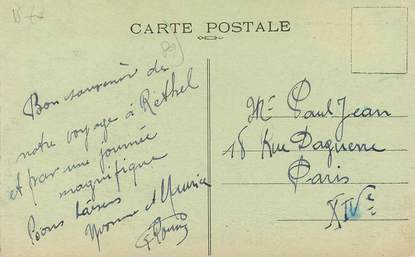 CARTE POSTALE
Bon souvenir de
notre voyage à Rethel
et par une journée
magnifique
Bons baisers
Yvonne et Maurice
Mr Paul Jean
18 Rue Daguerre
Paris
XIVe